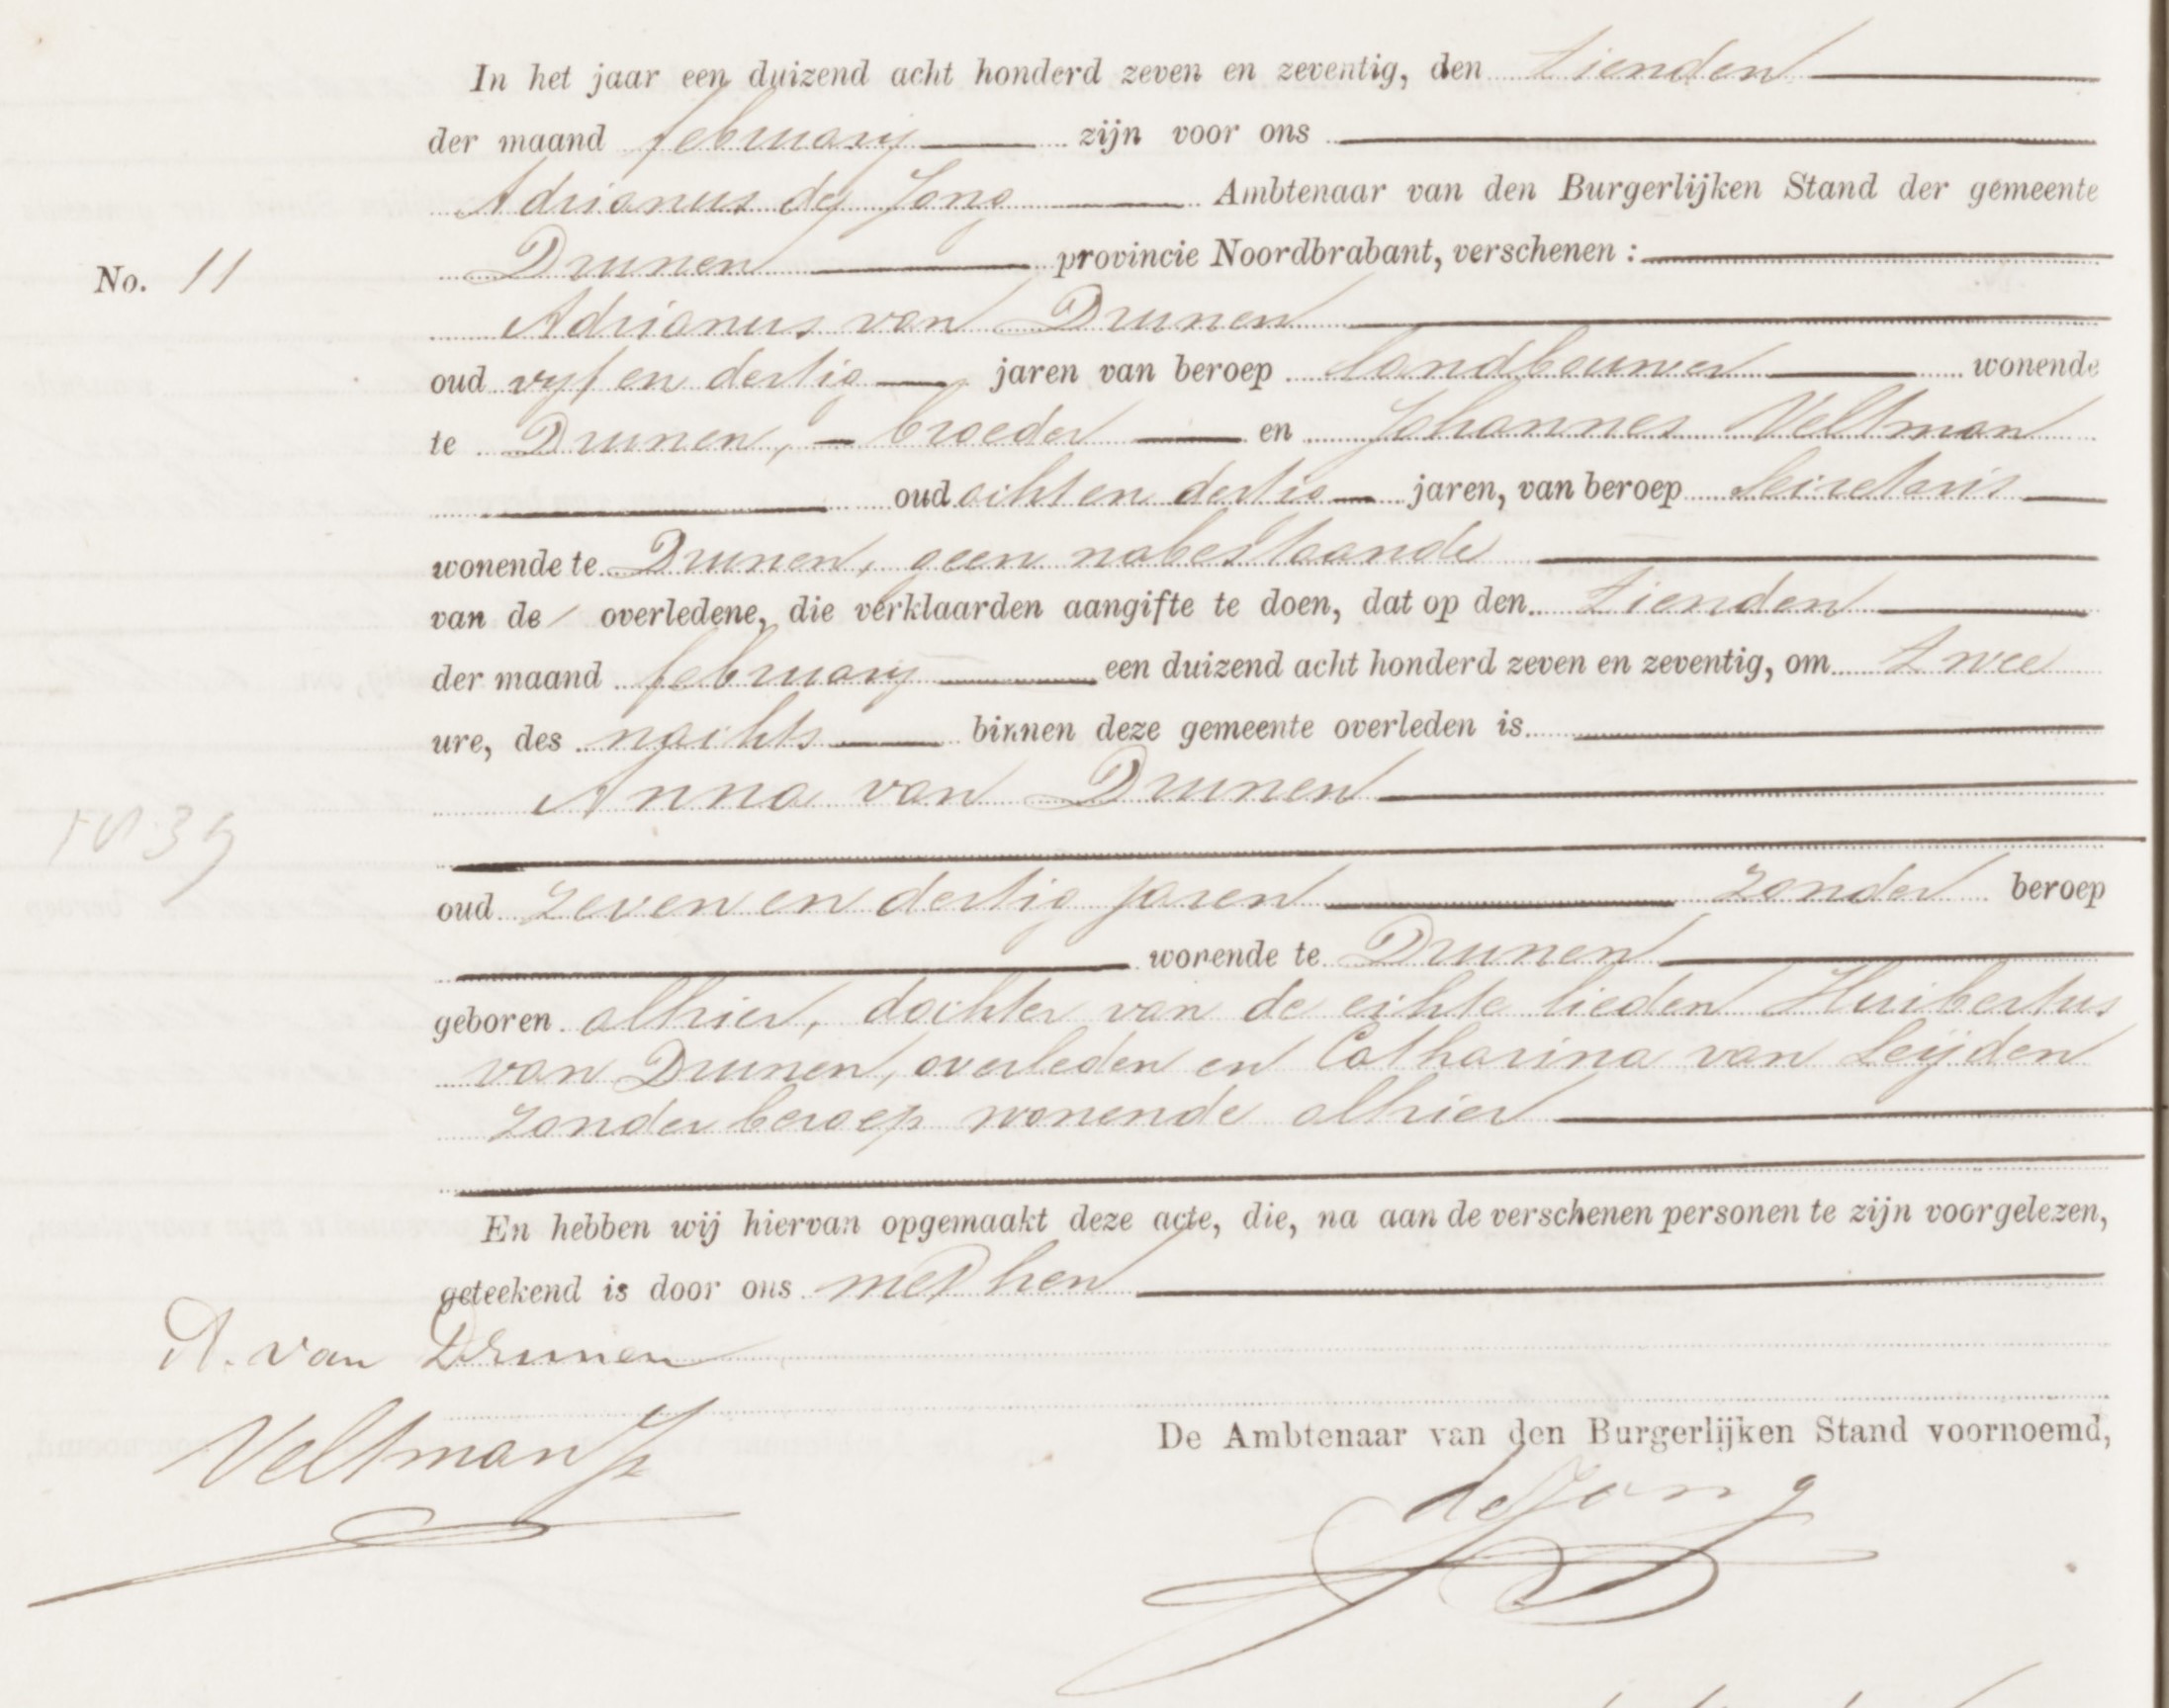 In het jaar een duizend acht honderd zeven en zeventig, den tienden
der maand february zijn voor ons
Adrianus de Jong Ambtenaar van den Burgerlijken Stand der gemeente
No. 11 Drunen provincie Noordbrabant, verschenen :
Adrianus van Drunen
oud vyf en dertig jaren van beroep landbouwer wonende
te Drunen, broeder en Johannes Veltman
oud acht en dertig jaren, van beroep Secretaris
wonende te Drunen, geen nabestaande
van de overledene, die verklaarden aangifte te doen, dat op den tienden
der maand february een duizend acht honderd zeven en zeventig, om twee
ure, des nachts binnen deze gemeente overleden is
Anna van Drunen
1839
oud zeven en dertig jaren zonder beroep
wonende te Drunen
geboren alhier, dochter van de echte lieden Huibertus
van Drunen, overleden en Catharina van Leijden
zonder beroep wonende alhier
En hebben wij hiervan opgemaakt deze acte, die, na aan de verschenen personen te zijn voorgelezen,
geteekend is door ons met hen
A. van Drunen
Veltman
De Ambtenaar van den Burgerlijken Stand voornoemd,
de Jong